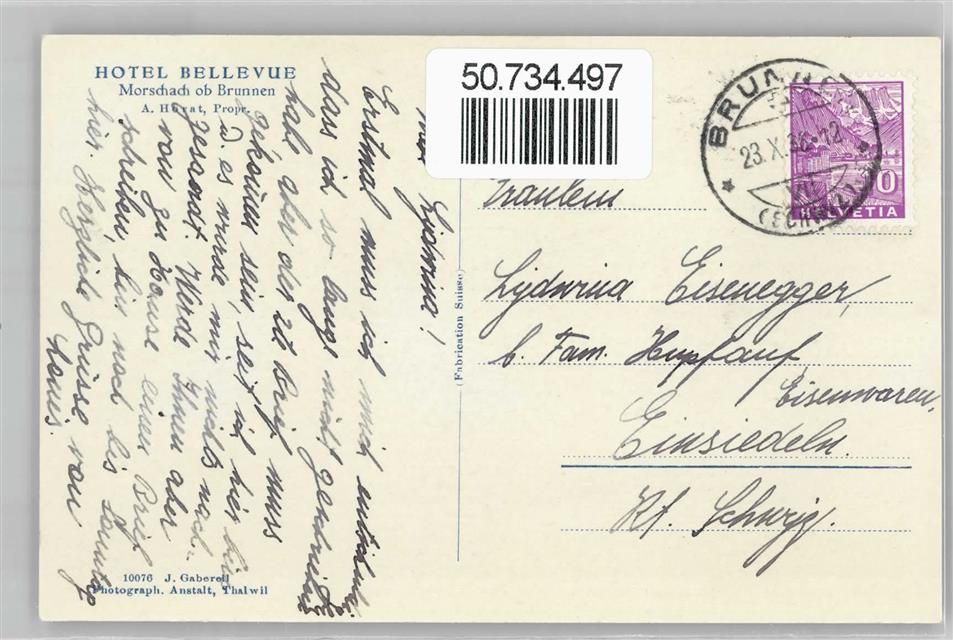 HOTEL BELLEVUE
Morschach ob Brunnen
A. Hürat, Propr.
50.734.497
BRUNNEN
23.X.36-12
(SCHWYZ)
10
HELVETIA
Lidwina!
Erstmal muss ich mich entschuldi
dass ich so lange nicht geschrieben
habe, aber der letzte Brief muss
gekommen sein, seit ich hier bin
es wurde mir nichts nach-
gesandt. Werde Ihnen aber
von zu Hause einen Brief
schreiben, bin noch bis Sonntag
hier. Herzliche Grüsse von
Louis.
(Fabrication Suisse)
Fräulein
Lydwina Eisenegger,
b. Fam. Hupfauf
Eisenwaren,
Einsiedeln.
Kt. Schwyz.
10076 J. Gaberell
Photograph. Anstalt, Thalwil